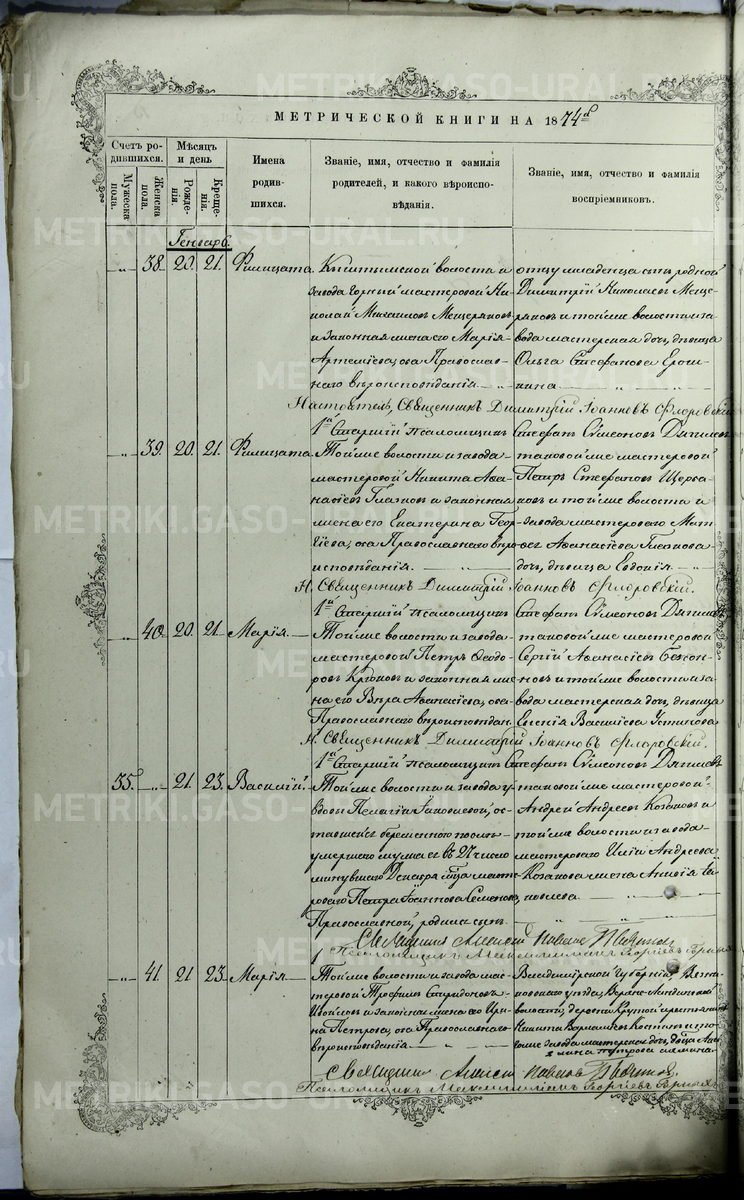 МЕТРИЧЕСКОЙ КНИГИ НА 1874й
Счетъ родившихся.
Мѣсяцъ и день
Имена родившихся.
Званіе, имя, отчество и фамилія родителей, и какого вѣроисповѣданія.
Званіе, имя, отчество и фамилія воспріемниковъ.
Мужеска пола.
Женска пола.
Рожденія.
Крещенія.
38. 20. 21. Филицата.
Кыштымской волости и
завода горный мастеровой Ни-
колай Михаиловъ Мещеряковъ
и законная жена его Марія
Артеміева, оба Православ-
наго вѣроисповѣданія
отцу младенца сынъ родной
Димитрій Николаевъ Меще-
ряковъ и той же волости и за-
вода мастерская дочь, дѣвица
Ольга Стефанова
Настоятель, Священникъ Димитрій Іоанновъ Флоровскій
1й Старшій псаломщикъ Стефанъ Сѵмеоновъ
39. 20. 21. Филицата.
Той же волости и завода
мастеровой Никита Аѳа-
насіевъ и законная
жена его Екатерина Геор-
гіева, оба Православнаго вѣро-
исповѣданія.
таковой же мастеровой
Петръ Стефановъ Щерба-
ковъ и той же волости и
завода мастероваго Мат-
ѳея Аѳанасіева
дочь, дѣвица Евдокія
Н. Священникъ Димитрій Іоанновъ Флоровскій.
1й Старшій псаломщикъ Стефанъ Сѵмеоновъ
40. 20. 21. Марія.
Той же волости и завода
мастеровой Петръ Ѳеодо-
ровъ Крюковъ и законная же-
на его Вѣра Аѳанасіева, оба
Православнаго вѣроисповѣдан.
таковой же мастеровой
Сергій Аѳанасіевъ
и той же волости и за-
вода мастерская дочь, дѣвица
Евгенія Василіева Устинова
Н. Священникъ Димитрій Іоанновъ Флоровскій.
1й Старшій псаломщикъ Стефанъ Сѵмеоновъ
35. 21. 23. Василій.
Той же волости и завода у
вдовы Пелагіи Іаковлевой, ос-
тавшейся беременною послѣ
умершаго мужа ея въ 27 число
минувшаго Декабря м-ца масте-
роваго Петра Іоаннова Семенова,
Православной, родился сынъ
таковой же мастеровой
Андрей Андреевъ Козаковъ и
той же волости и завода
мастероваго Иліи Андреева
Козакова жена Анисія Іа-
ковлева
Священникъ Алексій
Псаломщикъ Максимиліанъ Георгіевъ
41. 21 23. Марія
Той же волости и завода мас-
теровой Трофимъ Спиридоновъ
и законная жена его Ири-
на Петрова, оба Православнаго
вѣроисповѣданія
Владимірской губерніи,
уѣзда,
волости, деревни Крутой крестьянинъ
Никита Варнавіевъ и то-
го же завода мастерская дочь, дѣвица
Петрова
Священникъ Алексій
Псаломщикъ Максимиліанъ Георгіевъ
METRIKI.GASO-URAL.RU